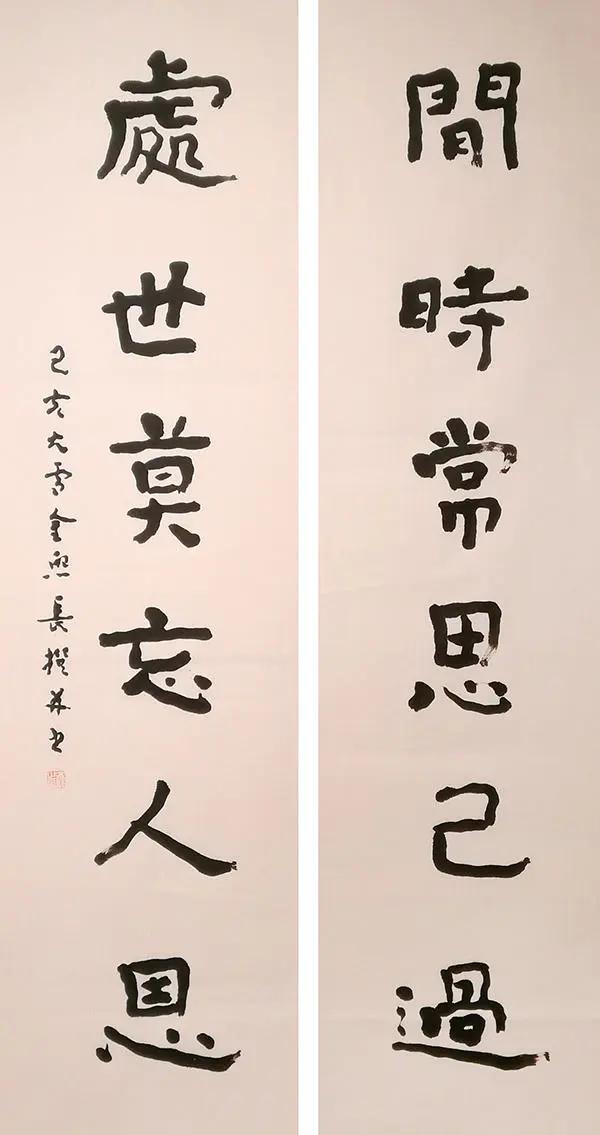 閒時常思己過
處世莫忘人恩
己亥大雪金熙長撰并书